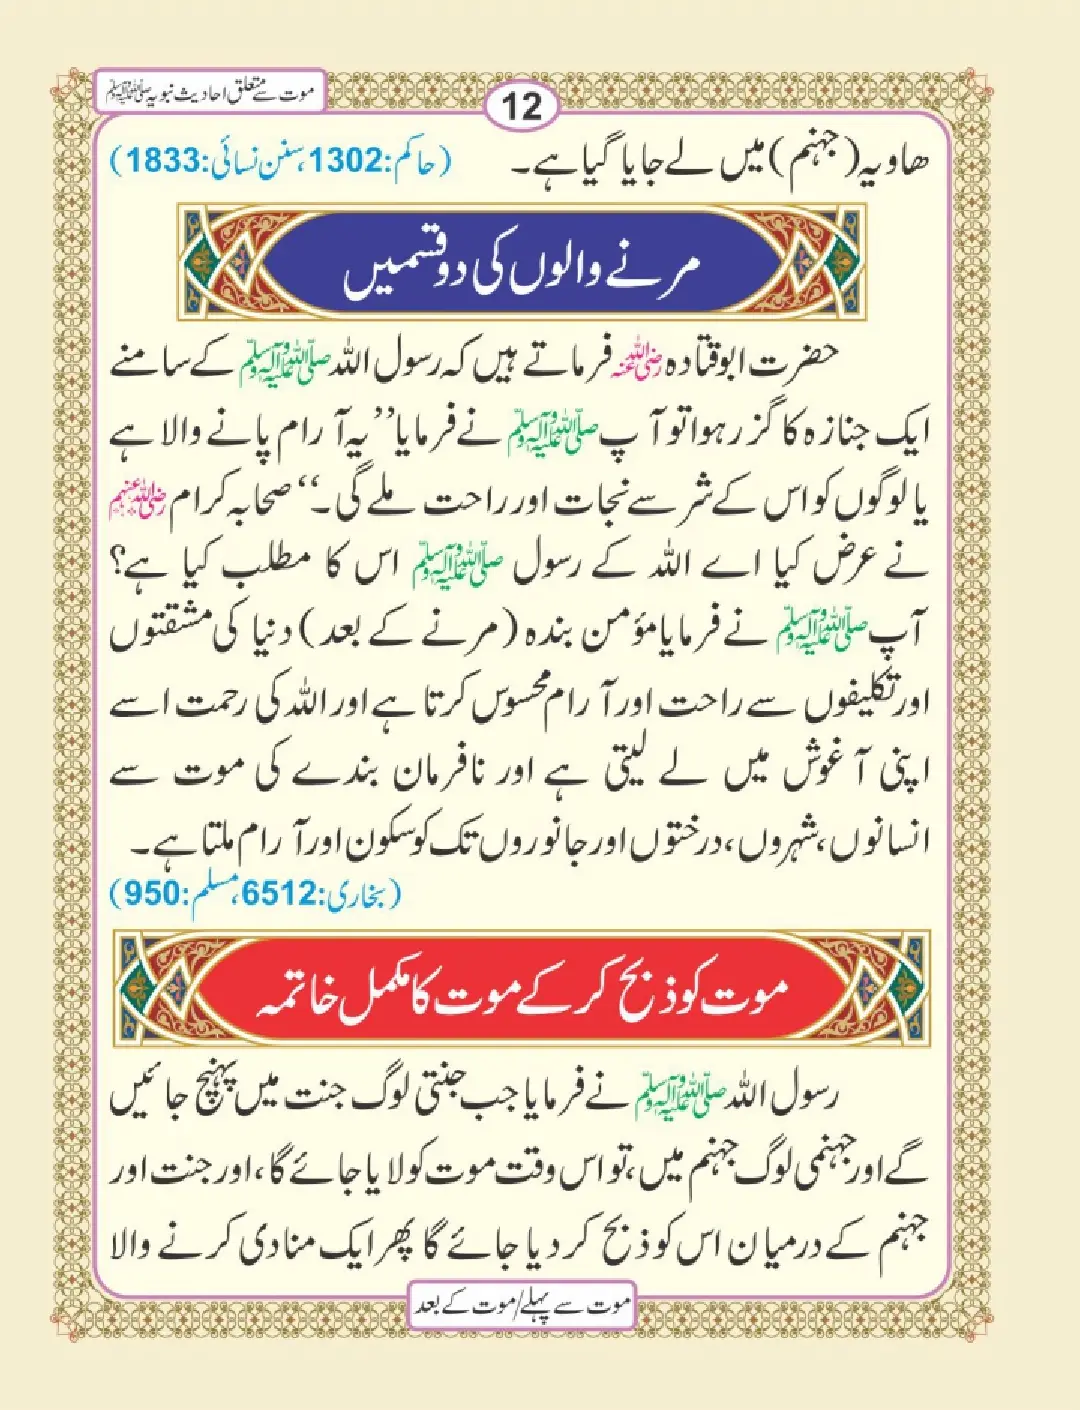 موت سے متعلق احادیث نبویہ ﷺ
12
ھاویہ (جہنم) میں لے جایا گیا ہے۔ (حاکم:1302، سنن نسائی:1833)
مرنے والوں کی دو قسمیں
حضرت ابوقتادہ رضی اللہ عنہ فرماتے ہیں کہ رسول اللہ ﷺ کے سامنے
ایک جنازہ کا گزر ہوا تو آپ ﷺ نے فرمایا ’’یہ آرام پانے والا ہے
یا لوگوں کو اس کے شر سے نجات اور راحت ملے گی۔‘‘ صحابہ کرام رضی اللہ عنہم
نے عرض کیا اے اللہ کے رسول ﷺ اس کا مطلب کیا ہے؟
آپ ﷺ نے فرمایا مؤمن بندہ (مرنے کے بعد) دنیا کی مشقتوں
اور تکلیفوں سے راحت اور آرام محسوس کرتا ہے اور اللہ کی رحمت اسے
اپنی آغوش میں لے لیتی ہے اور نافرمان بندے کی موت سے
انسانوں، شہروں، درختوں اور جانوروں تک کو سکون اور آرام ملتا ہے۔
(بخاری:6512، مسلم:950)
موت کو ذبح کر کے موت کا مکمل خاتمہ
رسول اللہ ﷺ نے فرمایا جب جنتی لوگ جنت میں پہنچ جائیں
گے اور جہنمی لوگ جہنم میں، تو اس وقت موت کو لایا جائے گا، اور جنت اور
جہنم کے درمیان اس کو ذبح کر دیا جائے گا پھر ایک منادی کرنے والا
موت سے پہلے/موت کے بعد